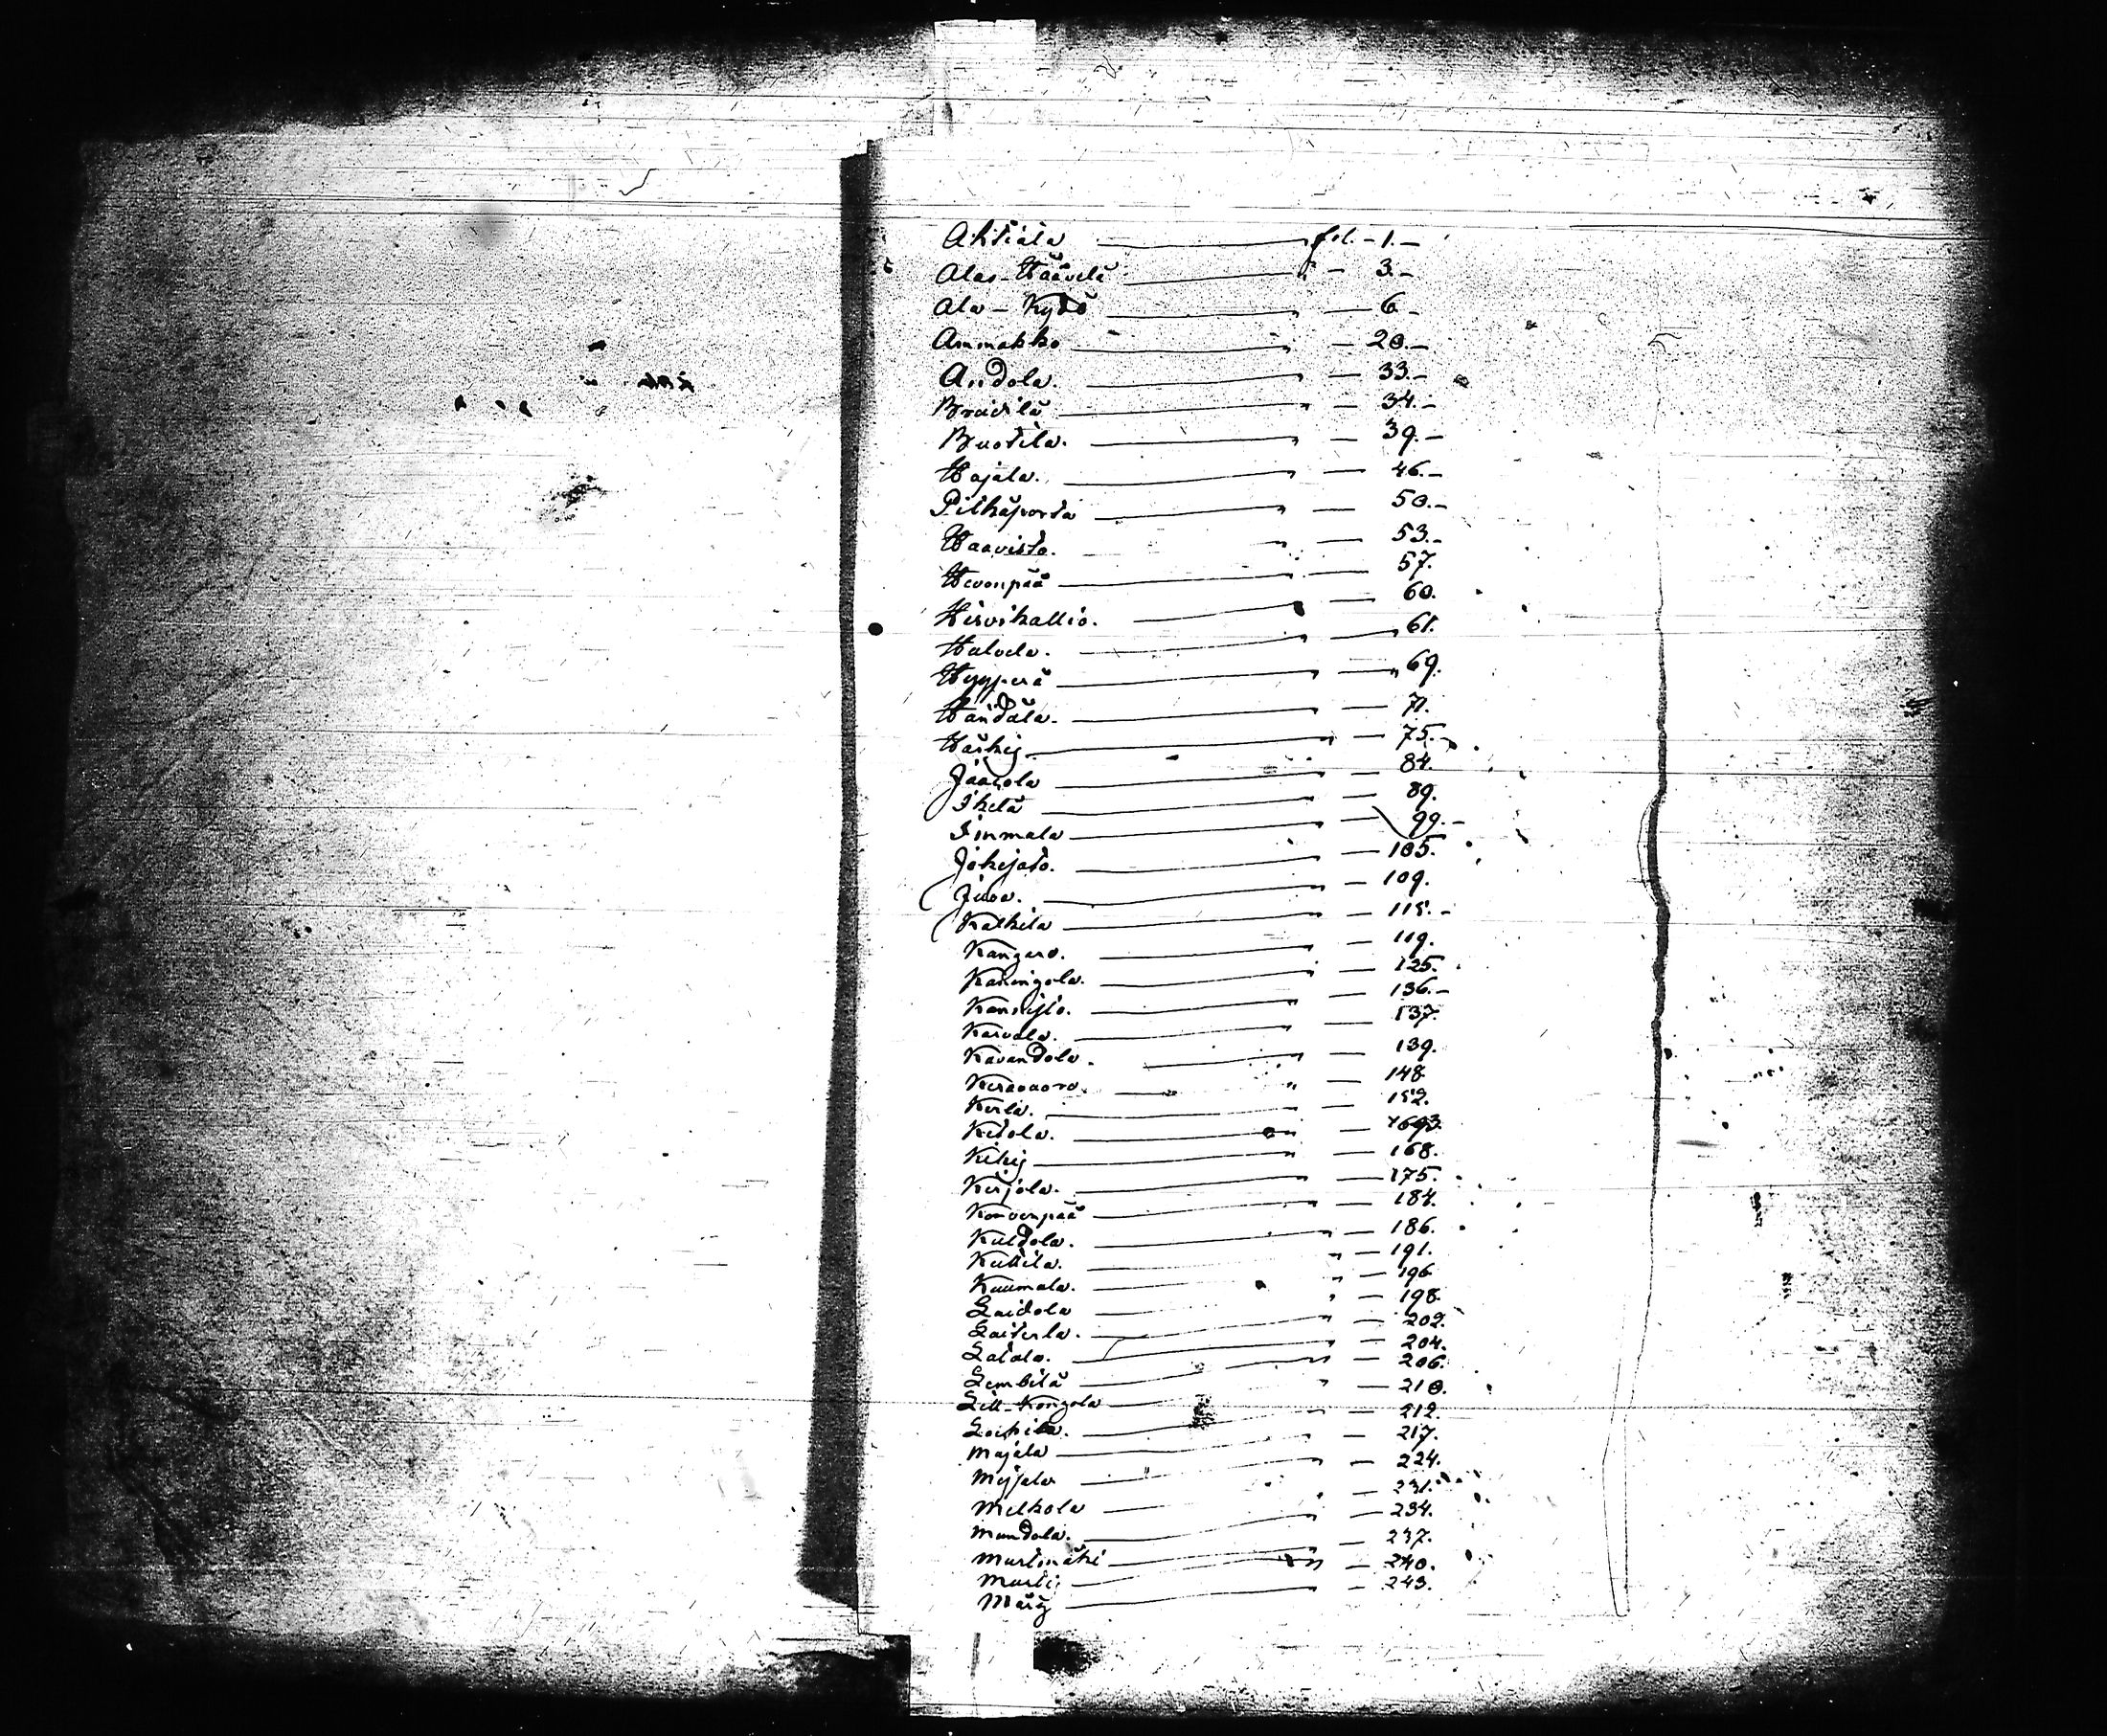 Ahtiala — fol. - 1. -
Alas-Häävelä — " - 3. -
Ala-Kydö — " - 6 -
Ammakko — " - 20. -
Andola. — " - 33. -
Bradilä — " - 34. -
Buotila. — " - 39. -
Hajala. — " - 46. -
Pitkäporta — " - 50. -
Haavisto. — " - 53. -
Hevonpää — " - 57.
Hirvikallio. — " - 60.
Halvela. — " - 61.
Hypperä — " - 69.
Händälä. — " - 71.
Härkij — " - 75. -
Jäärola — " - 84.
Ikelä — " - 89.
Iinmala — " - 99. -
Jokijato. — " - 105.
Juva. — " - 109.
Kalkila — " - 115. -
Kangaro. — " - 119.
Kaningola. — " - 125.
Kanslijlo. — " - 136. -
Karvala. — " - 137.
Kavandola. — " - 139.
Keravuoro. — " - 148
Kerla. — " - 152.
Ketola. — "
Kikij — " - 168.
Kirjola. — " - 175.
Korvenpää — " - 184.
Kuldola. — " - 186.
Kullila. — " - 191.
Kuumala. — " - 196
Laidola — " - 198.
Laiterla. — " - 202.
Latola. — " - 204.
Lembilä — " - 206.
Lill-Kongola — " - 210.
Loipila. — " - 212.
Majala — " - 217.
Mijjala — " - 224.
Melkola — " - 231.
Mundola. — " - 234.
Murtomäki — " - 237.
Murtij — " - 240.
Märij — " - 243.